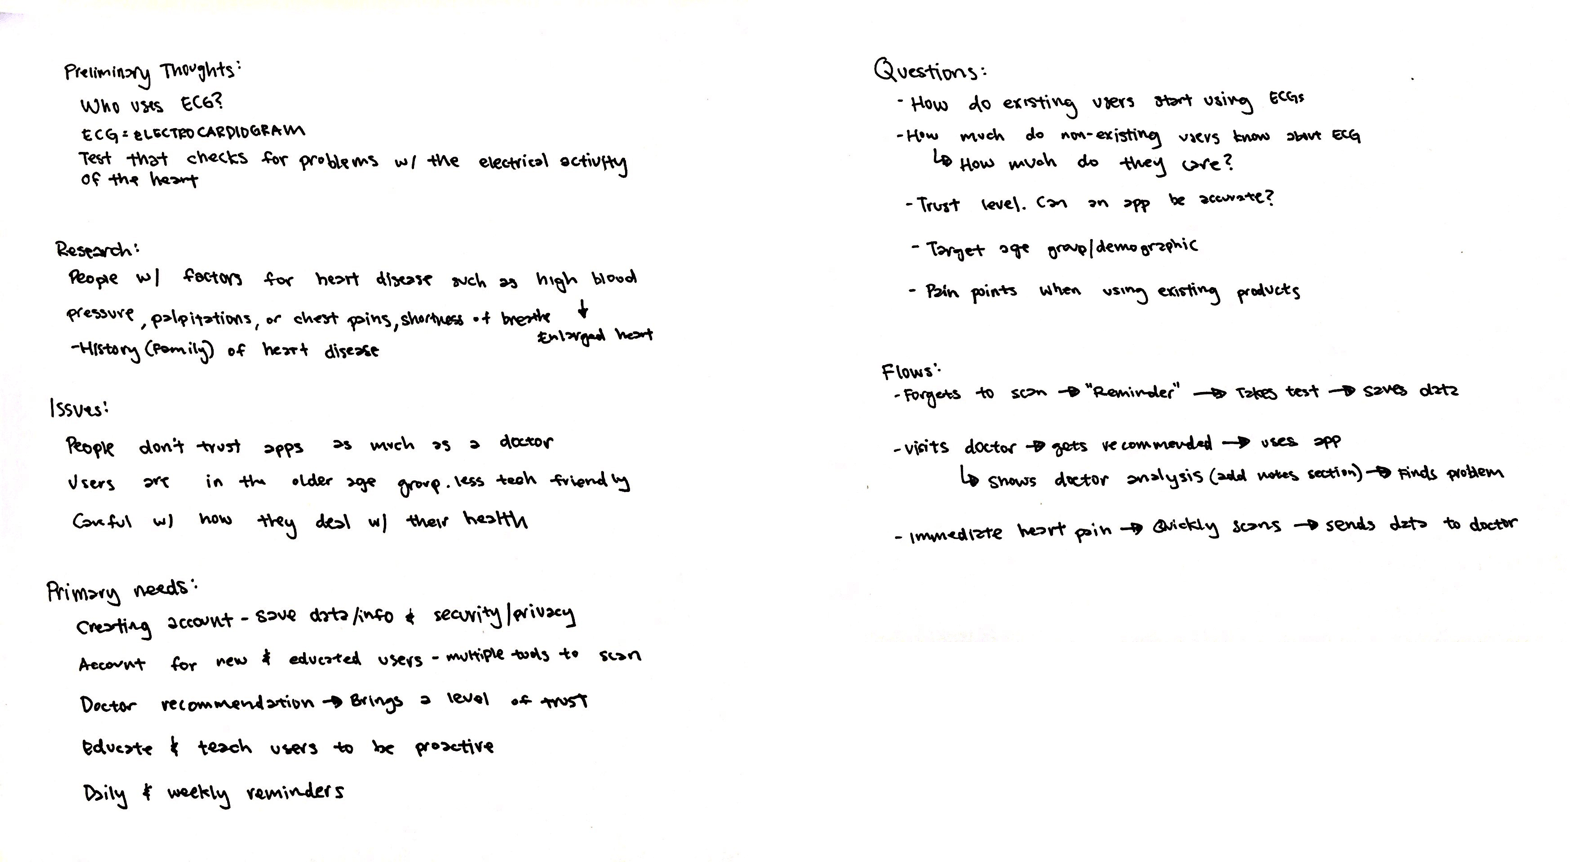 Preliminary Thoughts:
Who uses ECG?
ECG = ELECTROCARDIOGRAM
Test that checks for problems w/ the electrical activity
of the heart
Research:
People w/ factors for heart disease such as high blood
pressure, palpitations, or chest pains, shortness of breathe ↓
Enlarged heart
-History (Family) of heart disease
Issues:
People don't trust apps as much as a doctor
Users are in the older age group. less tech friendly
Careful w/ how they deal w/ their health
Primary needs:
Creating account - save data/info & security/privacy
Account for new & educated users - multiple tools to scan
Doctor recommendation → Brings a level of trust
Educate & teach users to be proactive
Daily & weekly reminders
Questions:
- How do existing users start using ECGs
- How much do non-existing users know about ECG
↳ How much do they care?
- Trust level. Can an app be accurate?
- Target age group/demographic
- Pain points when using existing products
Flows:
- Forgets to scan → "Reminder" → Takes test → saves data
- visits doctor → gets recommended → uses app
↳ shows doctor analysis (add notes section) → Finds problem
- Immediate heart pain → Quickly scans → sends data to doctor